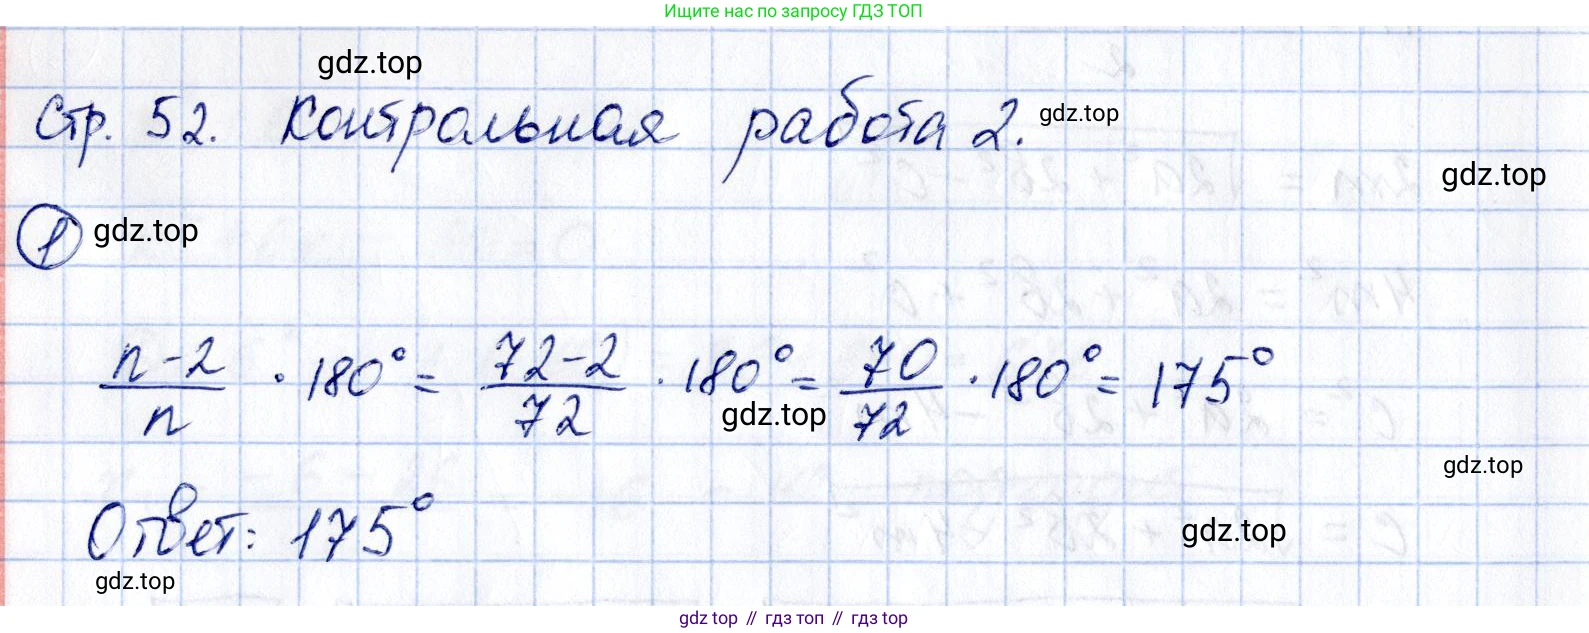 Ищите нас по запросу ГДЗ ТОП
gdz.top
Стр. 52. Контрольная работа 2.
gdz.top
gdz.top
1 gdz.top
(n-2)/n · 180° = (72-2)/72 · 180° = 70/72 · 180° = 175°
gdz.top
gdz.top
Ответ: 175°
gdz.top
gdz.top
gdz.top // гдз топ // gdz top